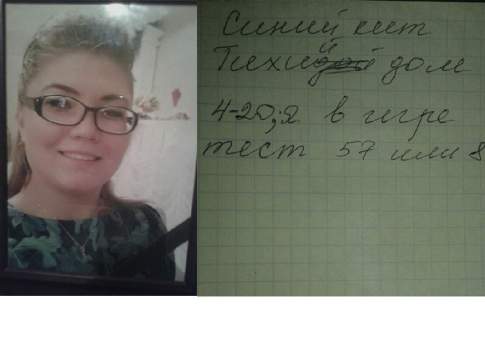 Синий кит
Тихий дом
4-20; я в игре
тест 57 или 8